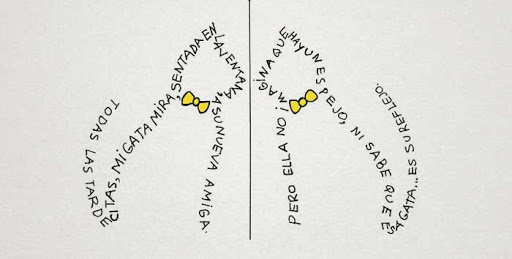 TODAS LAS TARDECITAS, MI GATA MIRA, SENTADA EN LA VENTANA, A SU NUEVA AMIGA.
PERO ELLA NO IMAGINA QUE HAY UN ESPEJO, NI SABE QUE ESA GATA... ES SU REFLEJO.